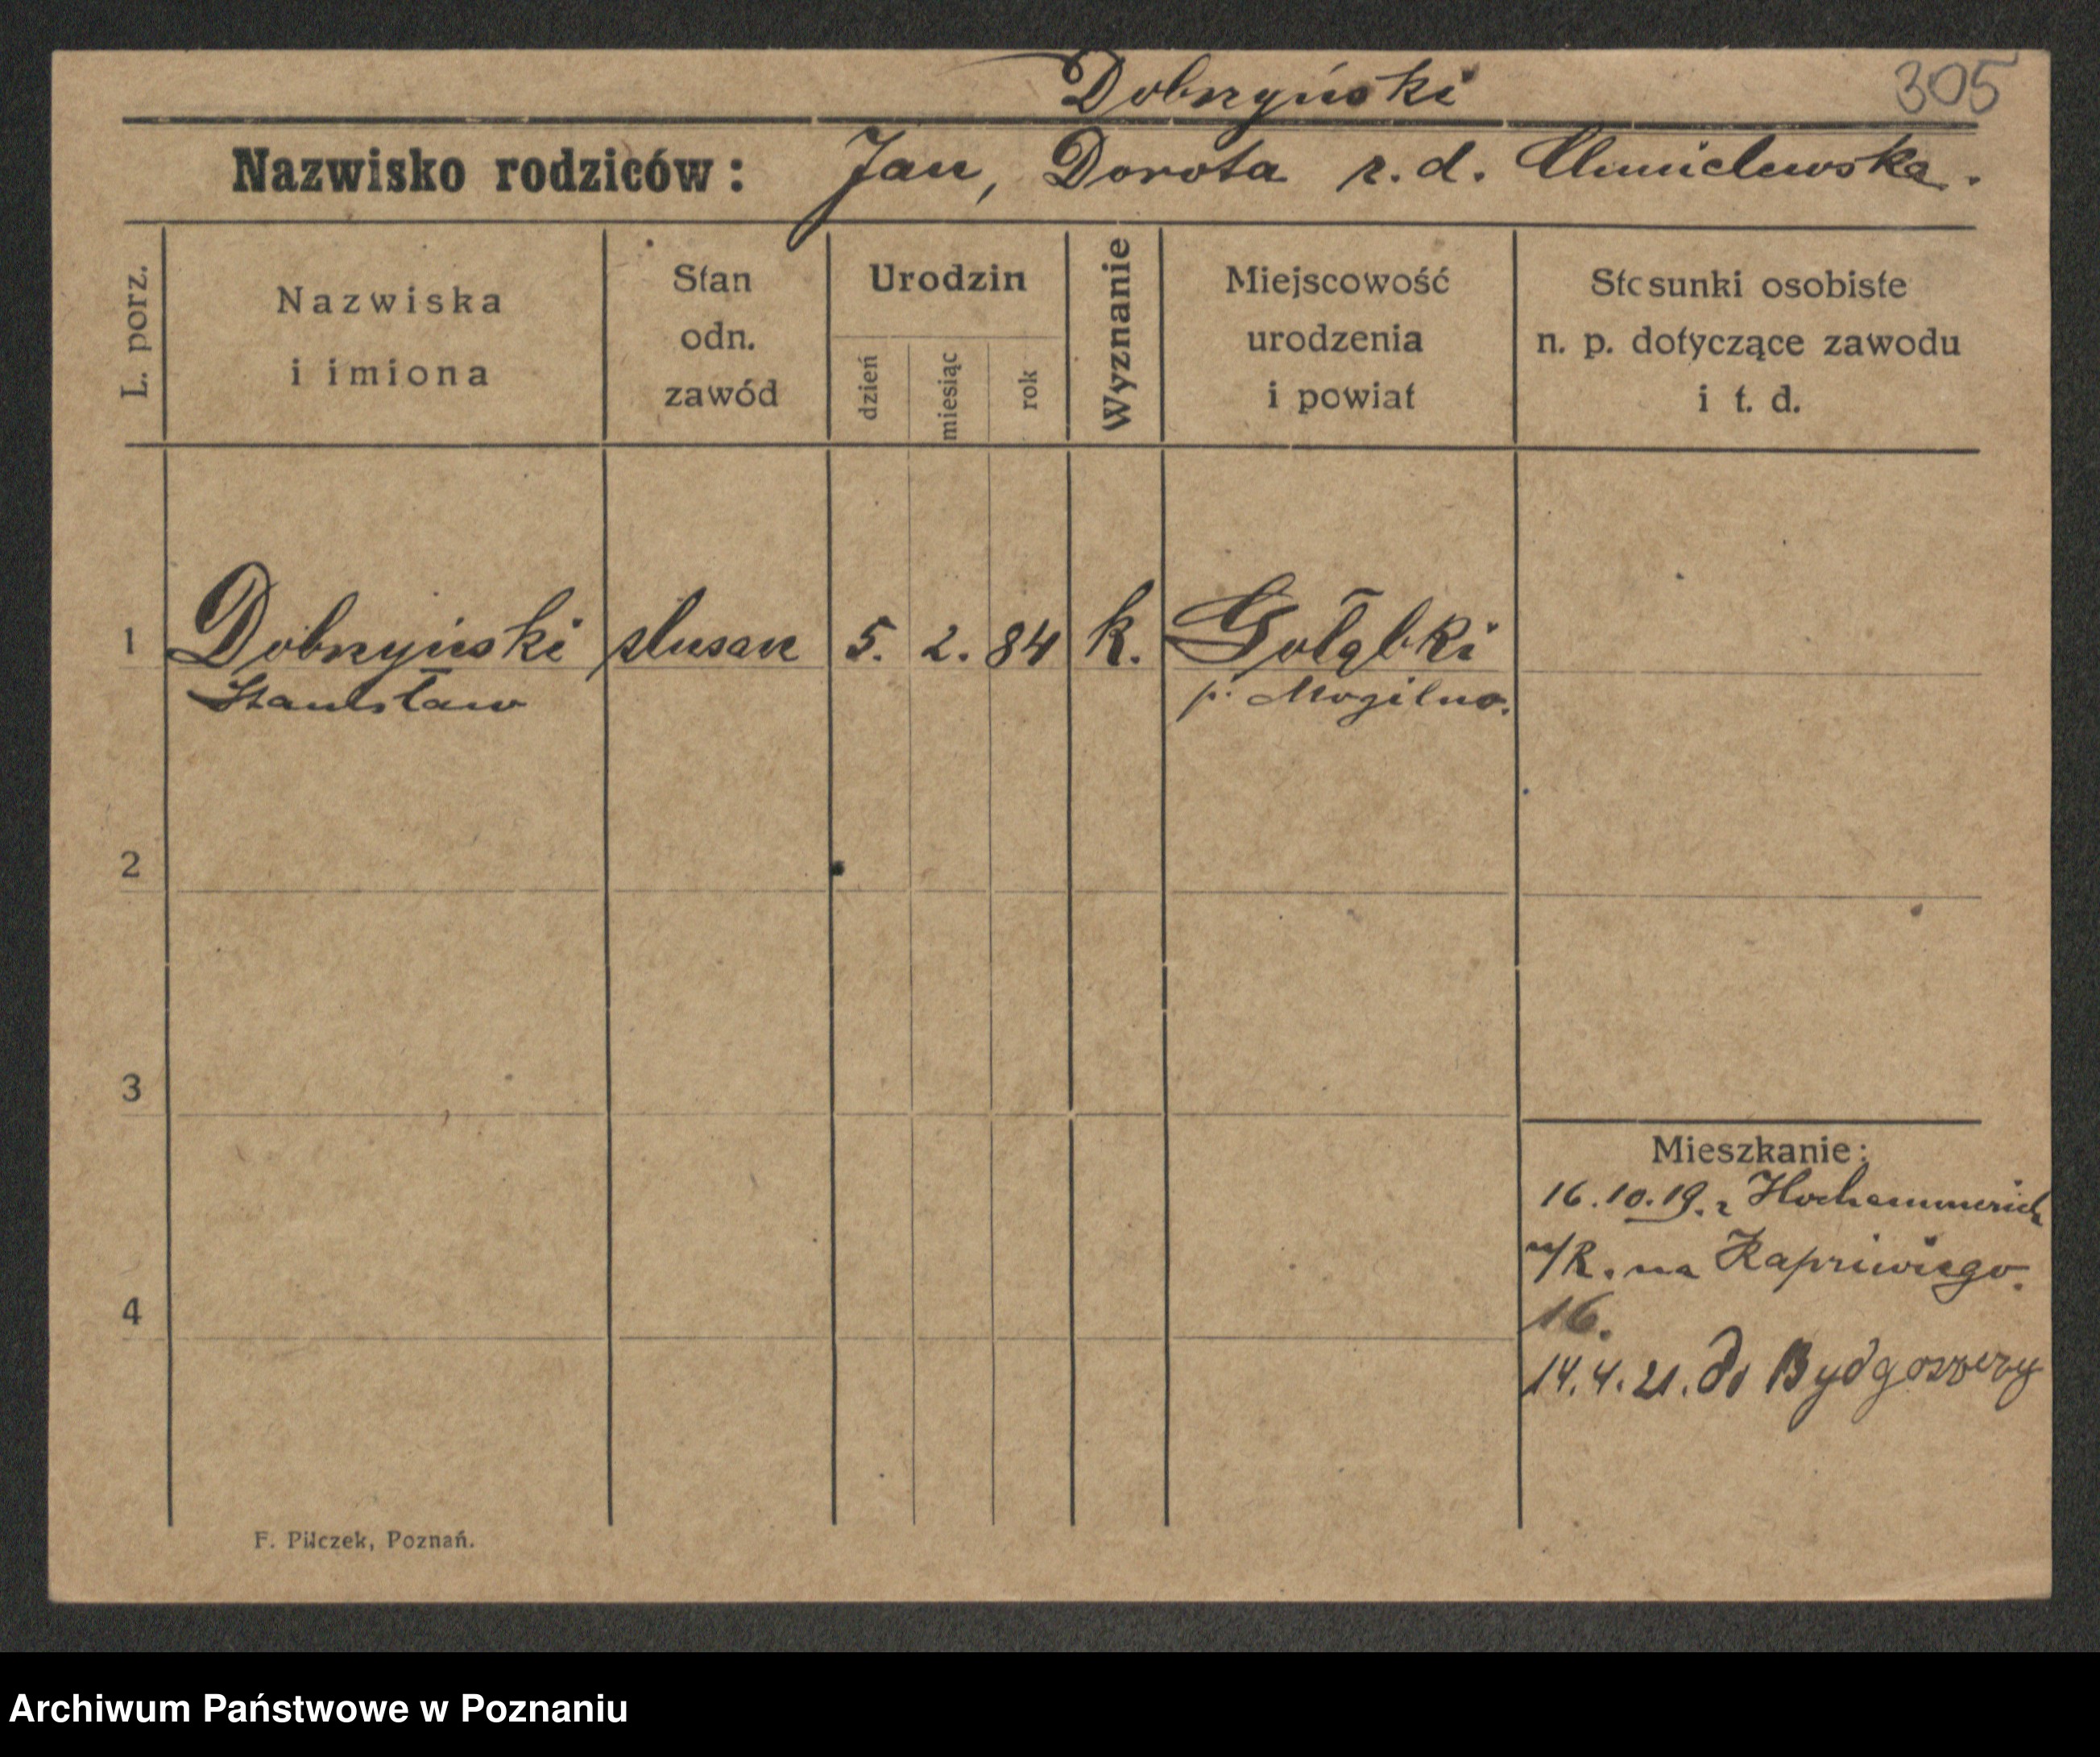 Dobrzyński
305
Nazwisko rodziców: Jan, Dorota z. d. Chmielewska.
L. porz.
Nazwiska
i imiona
Stan
odn.
zawód
Urodzin
dzień
miesiąc
rok
Wyznanie
Miejscowość
urodzenia
i powiat
Stosunki osobiste
n. p. dotyczące zawodu
i t. d.
1 Dobrzyński ślusarz 5. 2. 84 k. Gołąbki
Stanisław p. Mogilno.
2
3
Mieszkanie:
16.10.19. z Hochemmerich
n/R. na Kapriwiego.
16.
4
14.4.21. do Bydgoszczy
F. Pilczek, Poznań.
Archiwum Państwowe w Poznaniu